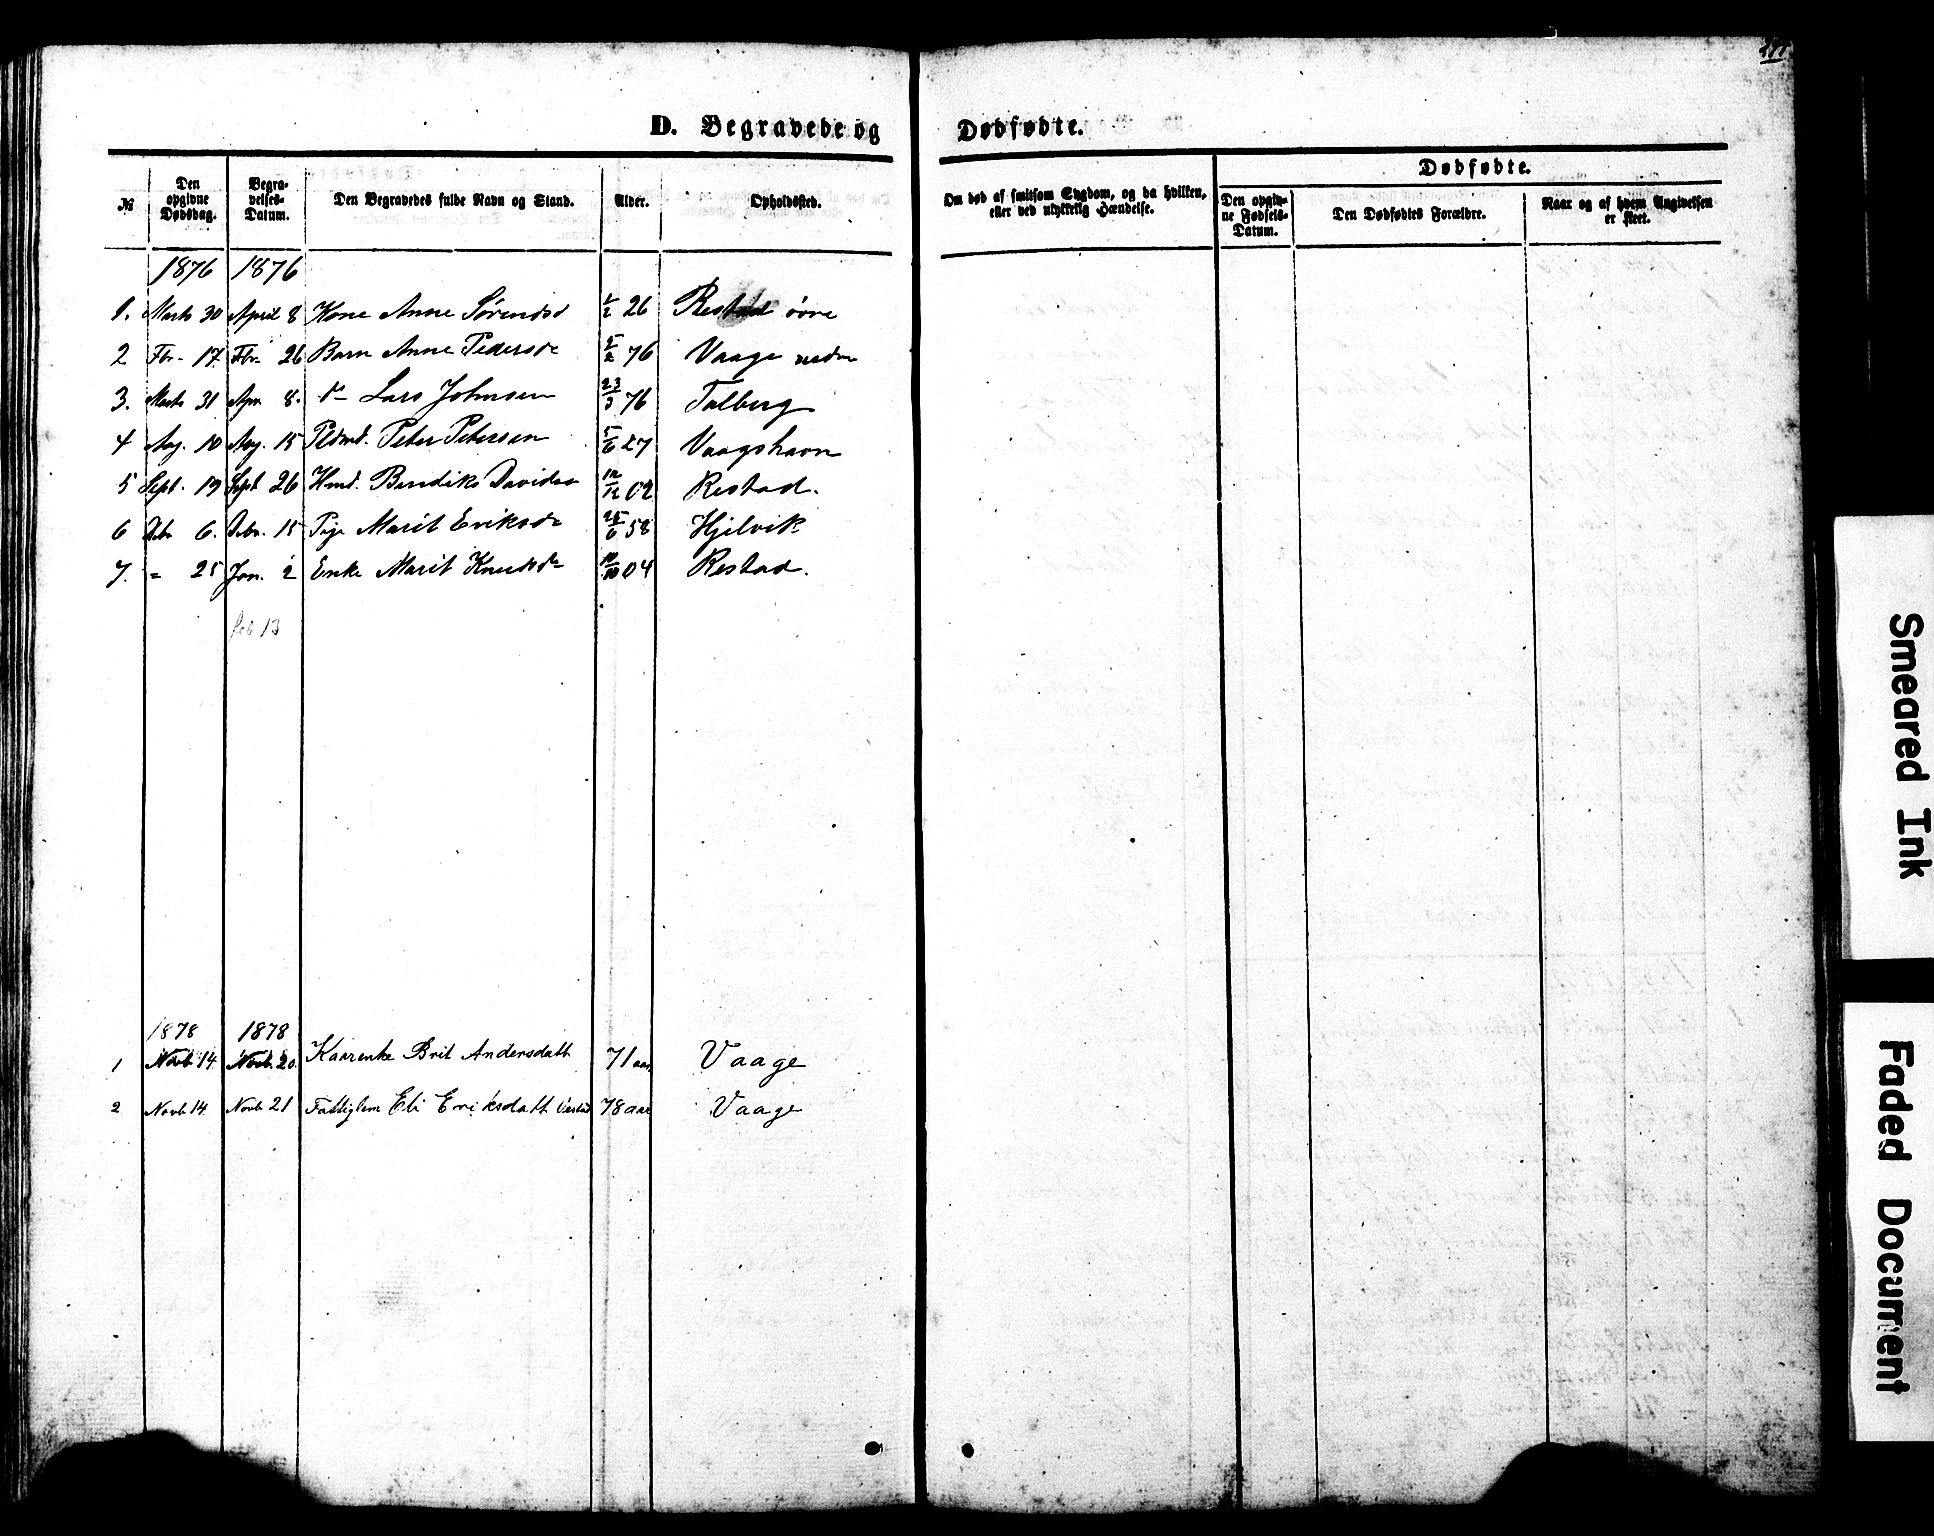 D. Begravede og Dødfødte.
№ Den opgivne Dødsdag. Begravelses-Datum. Den Begravedes fulde Navn og Stand. Alder. Opholdssted. Om død af smitsom Sygdom, og da hvilken, eller ved ulykkelig Hændelse. Dødfødte. Den opgivne Fødsels-Datum. Den Dødfødtes Forældre. Naar og af hvem Angivelsen er skeet.
1876 1876
1. Marts 30 April 8 Kone Anne Sørensd 26 Restad øvre
2 Fbr. 17. Fbr. 26 Barn Anne Pedersdr 5/2 76 Vaage nedre
3. Marts 31 Apr. 8. do Lars Johnsen 23/3 76 Talberg
4 Aug. 10 Aug. 15 Pldmd. Peter Petersen 5/6 27 Vaagshavn
5 Sept. 19 Sept 26 Hmd. Bendiks Davidsen 12/12 02 Restad.
6 Dcbr 6. Dcbr. 15 Pige Marit Eriksdr 25/6 58 Hjelvik
7. " 25 Jan. 2 Enke Marit Knudsdr 10/10 04 Restad.
feb 13
1878 1878
1 Novb 14. Novb. 20. Kaarenke Brit Andersdatt 71 aar Vaage
2 Novb 14. Novb 21 Fattiglem Eli Eriksdatt 78 aar Vaage
Smeared Ink
Faded Document